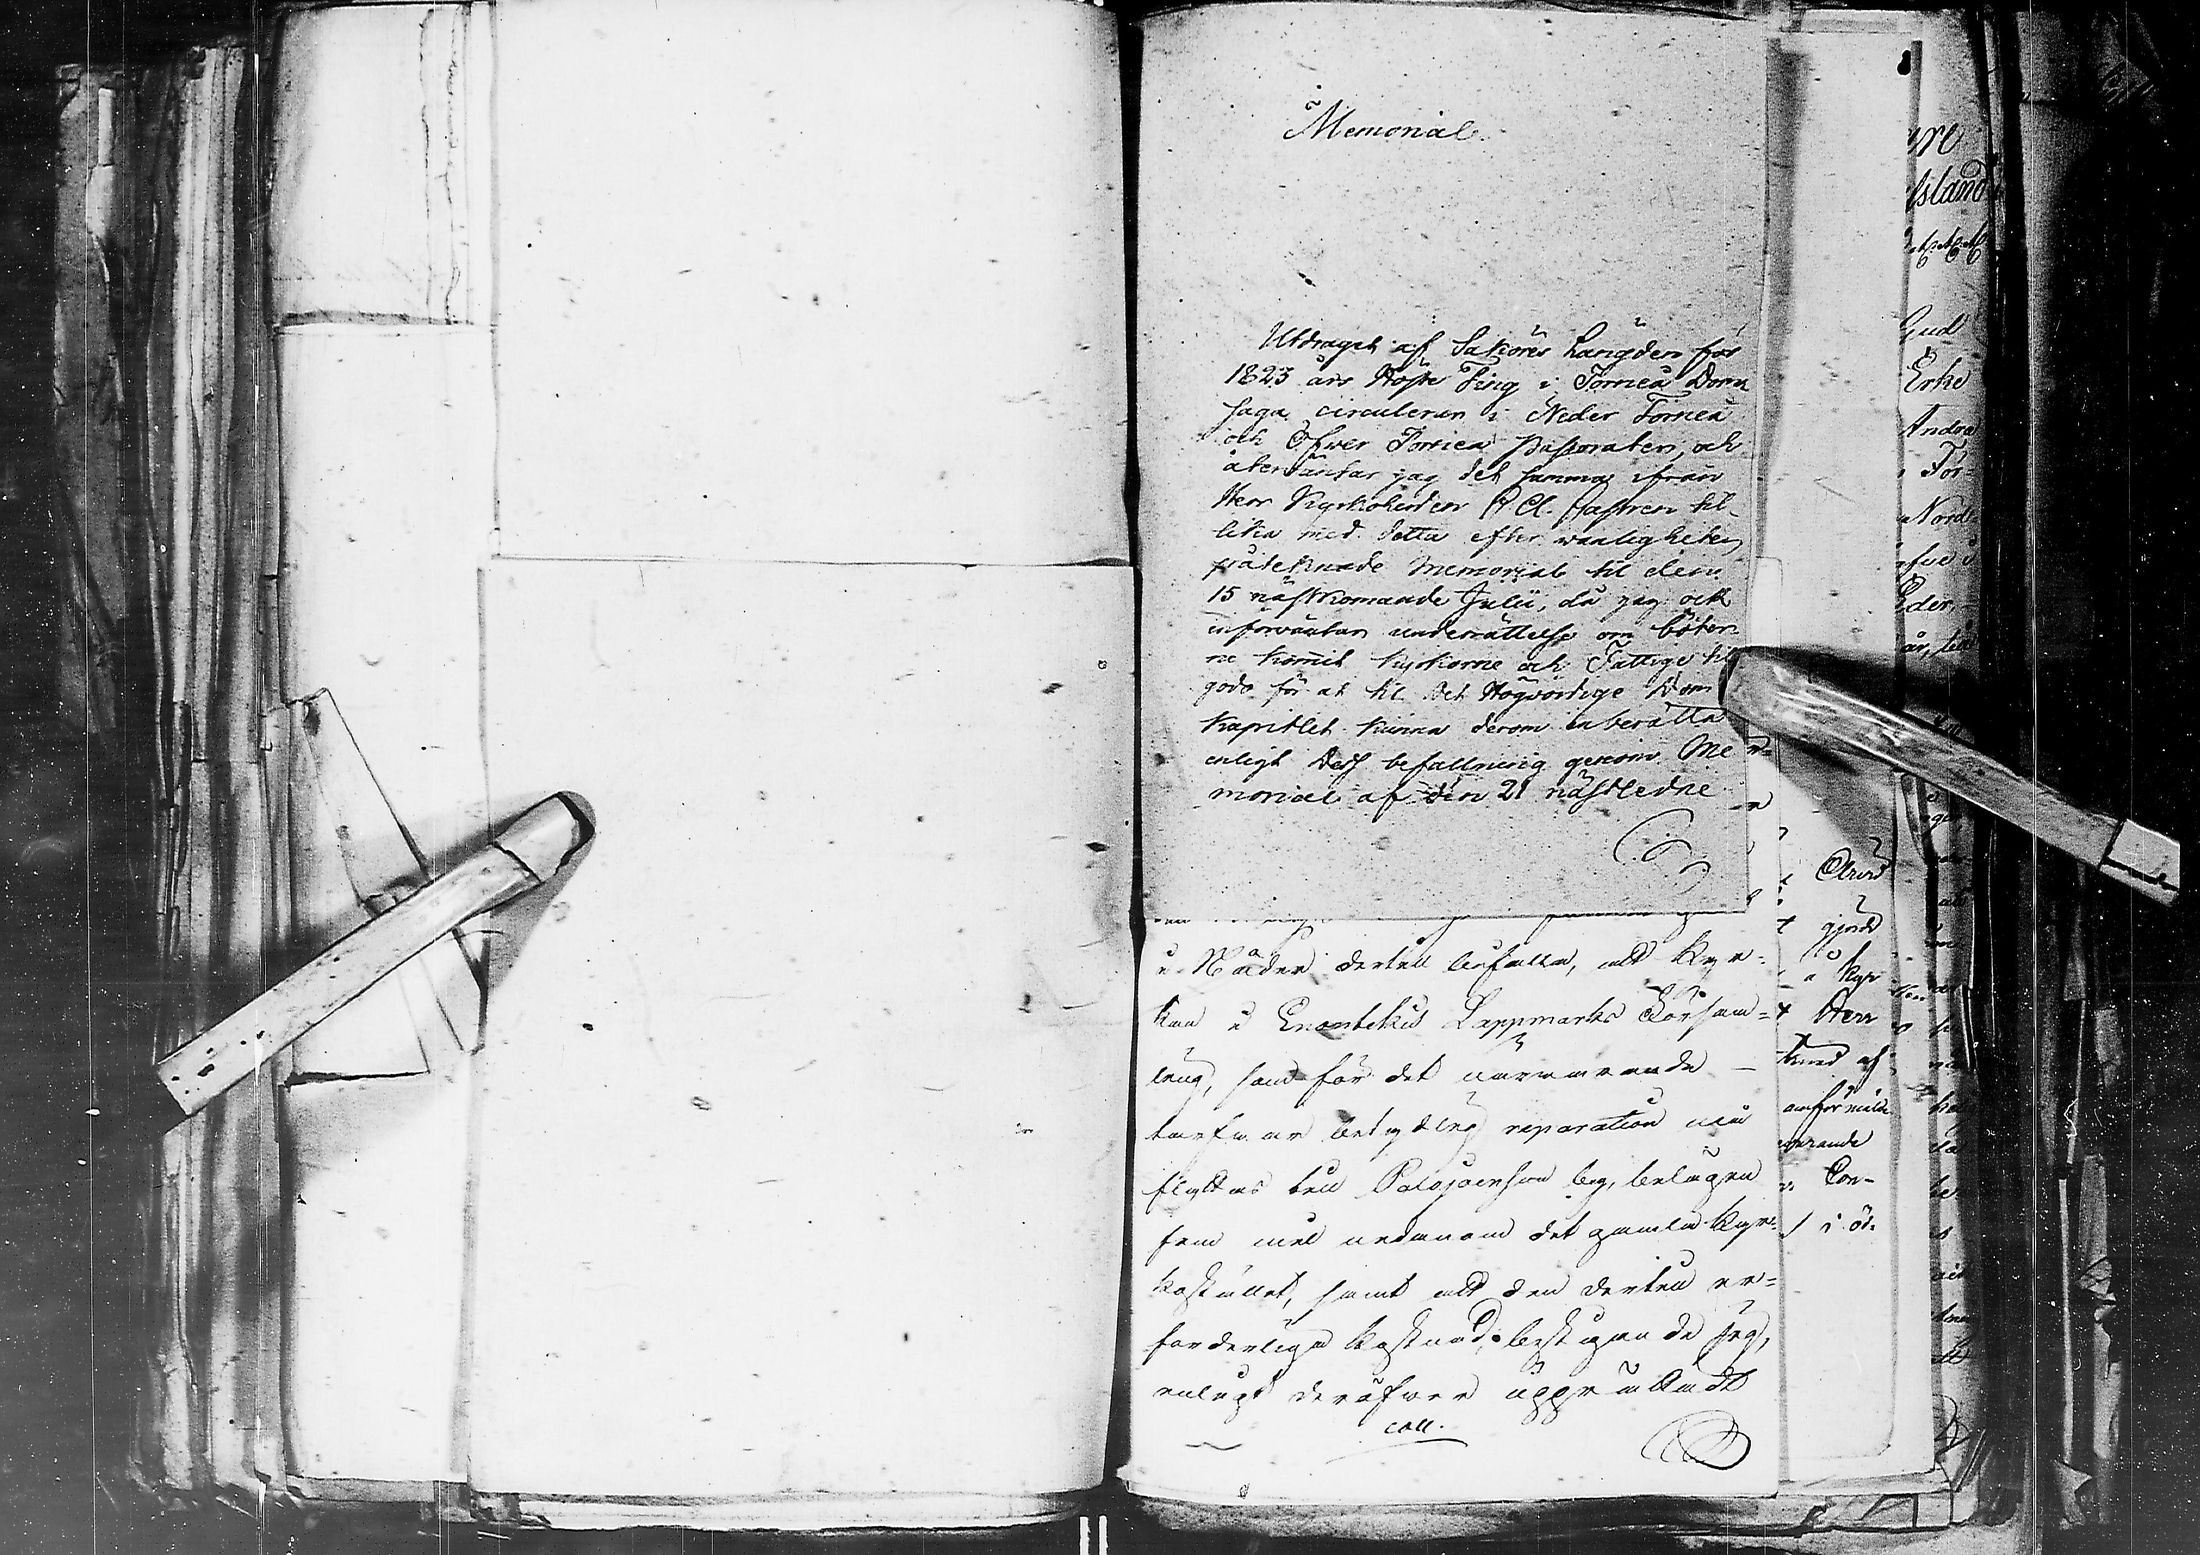 Memorial.
Utdraget af Sakörês Längden för
1823 års Höste Ting i Torneå Dom
saga circulerar i Neder Torneå
och Öfver Torneå Pastoraten, och
återväntar jag det samma ifrån
Herr Kyrkoherden Castren til
lika med detta efter vanligheten
påteknade Memorial til den
15 nästkomande Julii, då jag ock
införväntar underrättelse om böter
ne komit kyrkorne och Fattige til
godo för at til Det Högvördige Dom
Kapitlet kunna derom inberätta
enligt Dess befallning genom Me
morial af den 21 nästledne
i Nåder dertill befalla, att Kyr=
kan i Enontekis Lappmarks Församl=
ling, som för det närvarande
tarfvar betydlig reparation må
flyttas till Palojoensuu by, belägen
fem mil nedanom det gamla Kyr=
kostället, samt att den dertill er=
forderliga kostnad, bestigande sig,
enligt deröfver upprättadt
coll.
Isländ
Gud
Erke
Andra
Tor=
Nord=
Eder
gjorde
Kyr
Herr
varande
Con=
i ös.